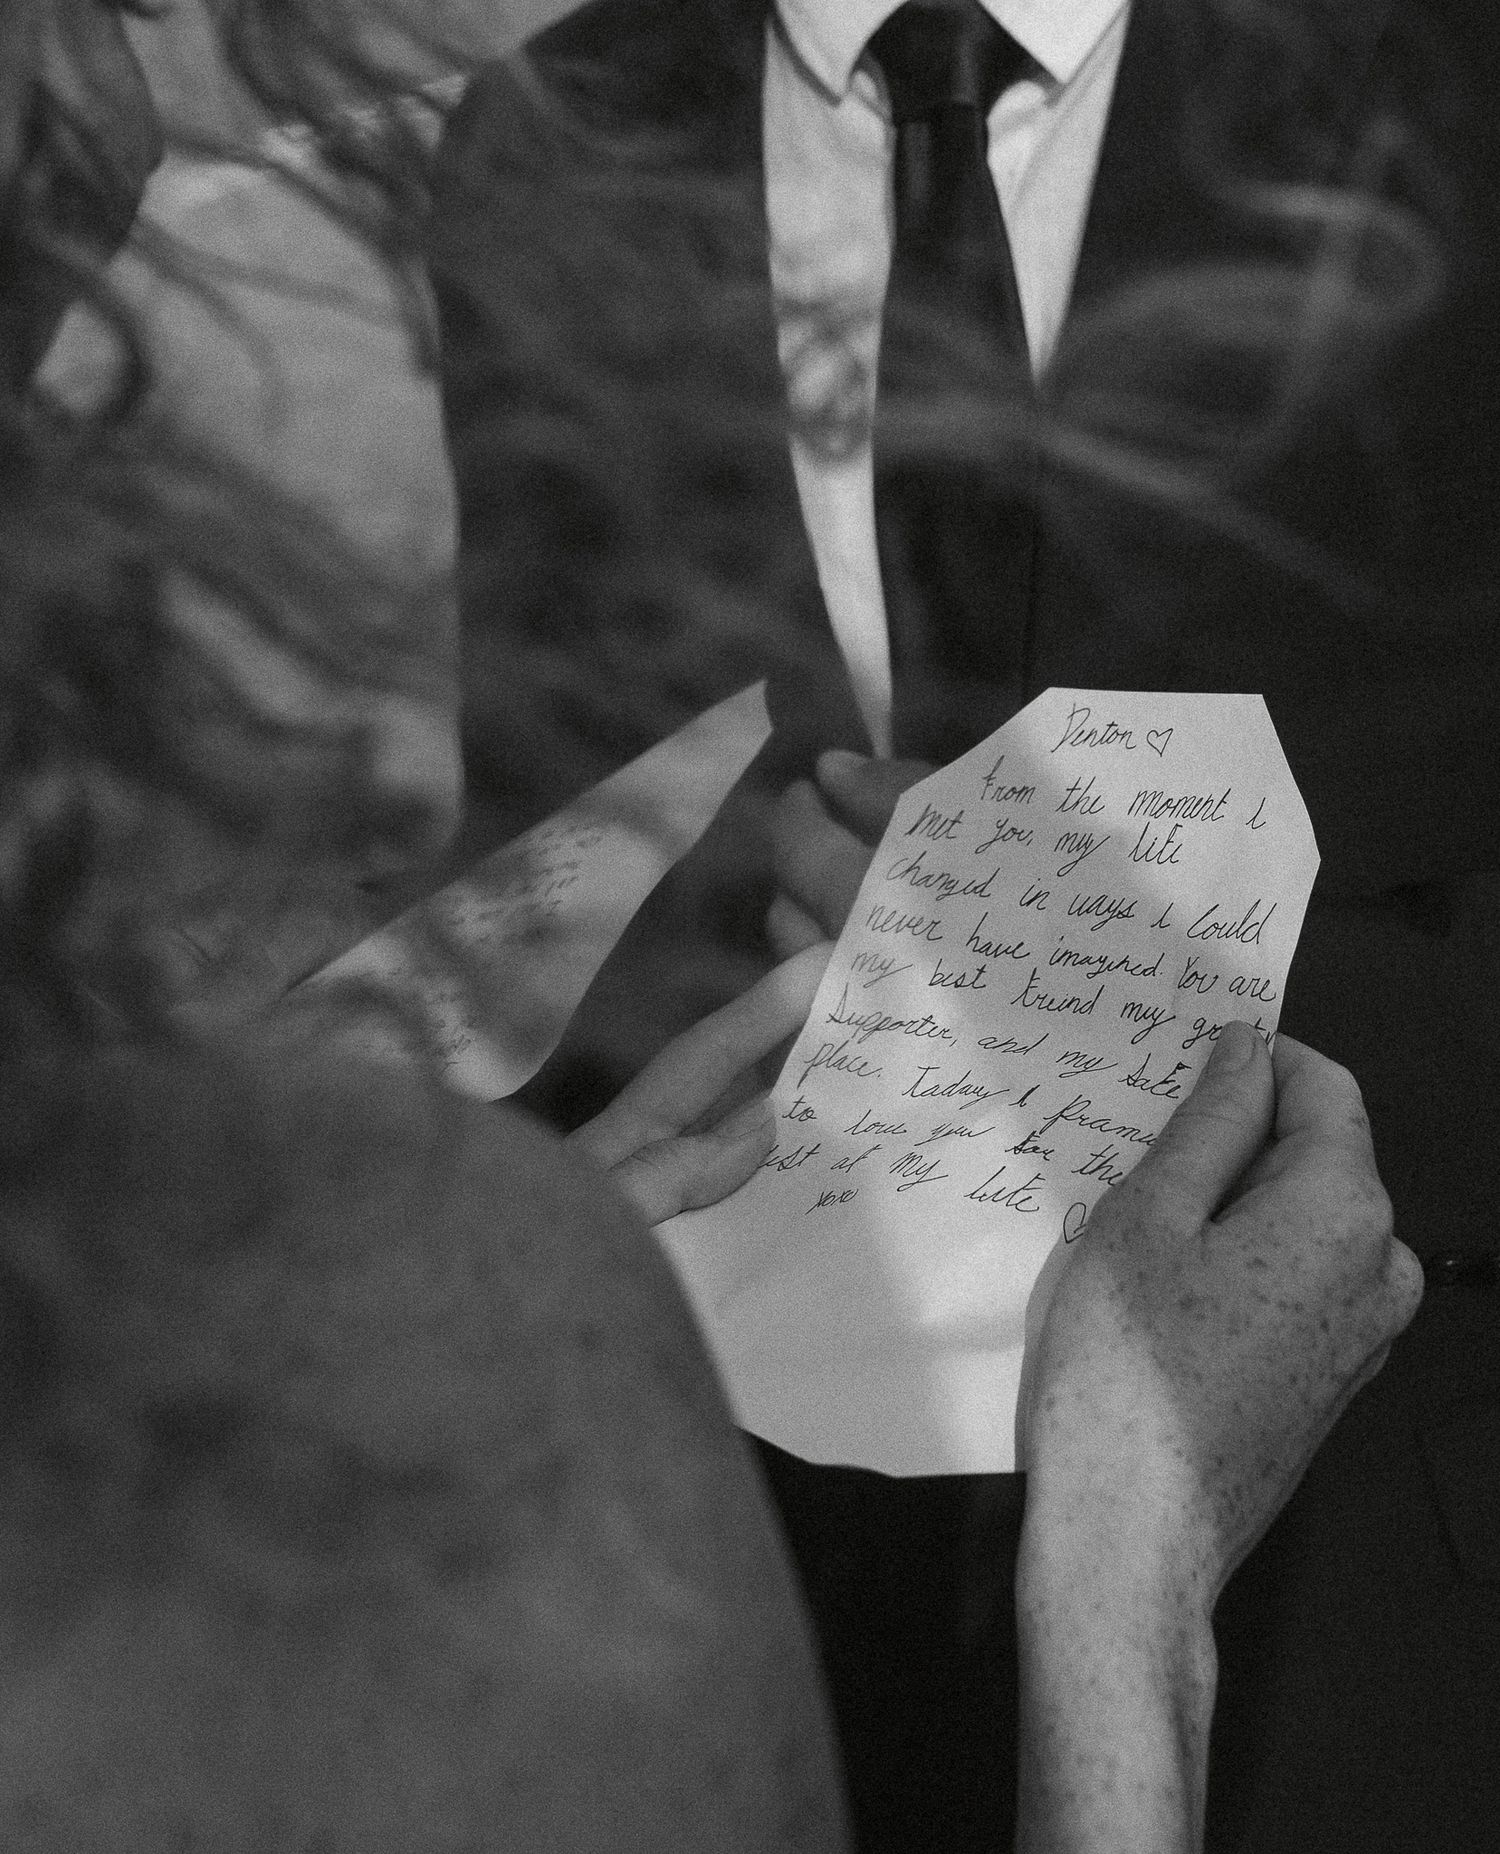 Denton ♡
From the moment I
met you, my life
changed in ways I could
never have imagined. You are
my best friend my
Supporter, and my safe
place. Today I
to love you for the
of my life ♡
xoxo